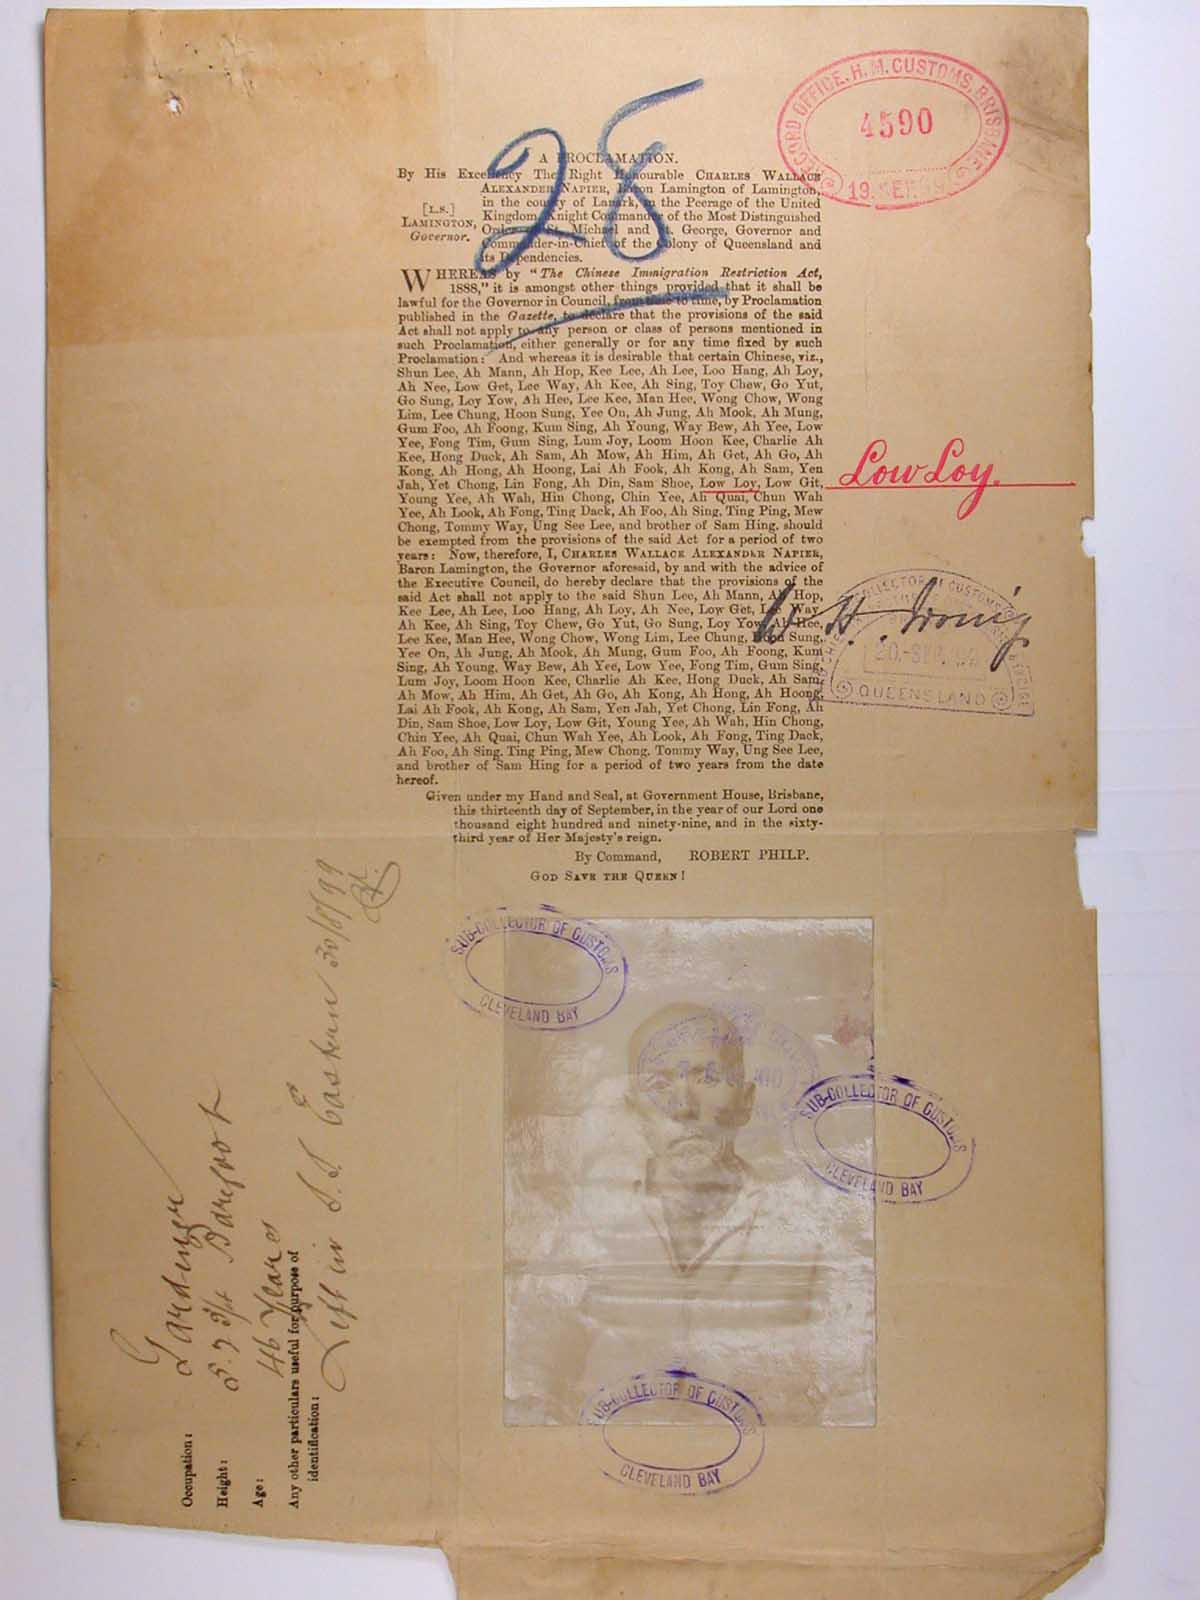 RECORD OFFICE. H. M. CUSTOMS, BRISBANE.
4590
19. SEP. 99
28
A PROCLAMATION.
By His Excellency The Right Honourable CHARLES WALLACE
ALEXANDER NAPIER, Baron Lamington of Lamington,
in the county of Lanark, in the Peerage of the United
[L.S.] Kingdom, Knight Commander of the Most Distinguished
LAMINGTON, Order of St. Michael and St. George, Governor and
Governor. Commander-in-Chief of the Colony of Queensland and
its Dependencies.
WHEREAS by "The Chinese Immigration Restriction Act,
1888," it is amongst other things provided that it shall be
lawful for the Governor in Council, from time to time, by Proclamation
published in the Gazette, to declare that the provisions of the said
Act shall not apply to any person or class of persons mentioned in
such Proclamation, either generally or for any time fixed by such
Proclamation: And whereas it is desirable that certain Chinese, viz.,
Shun Lee, Ah Mann, Ah Hop, Kee Lee, Ah Lee, Loo Hang, Ah Loy,
Ah Nee, Low Get, Lee Way, Ah Kee, Ah Sing, Toy Chew, Go Yut,
Go Sung, Loy Yow, Ah Hee, Lee Kee, Man Hee, Wong Chow, Wong
Lim, Lee Chung, Hoon Sung, Yee On, Ah Jung, Ah Mook, Ah Mung,
Gum Foo, Ah Foong, Kum Sing, Ah Young, Way Bew, Ah Yee, Low
Yee, Fong Tim, Gum Sing, Lum Joy, Loom Hoon Kee, Charlie Ah
Kee, Hong Duck, Ah Sam, Ah Mow, Ah Him, Ah Get, Ah Go, Ah
Kong, Ah Hong, Ah Hoong, Lai Ah Fook, Ah Kong, Ah Sam, Yen
Jah, Yet Chong, Lin Fong, Ah Din, Sam Shoe, Low Loy, Low Git,
Low Loy.
Young Yee, Ah Wah, Hin Chong, Chin Yee, Ah Quai, Chun Wah
Yee, Ah Look, Ah Fong, Ting Dack, Ah Foo, Ah Sing, Ting Ping, Mew
Chong, Tommy Way, Ung See Lee, and brother of Sam Hing, should
be exempted from the provisions of the said Act for a period of two
years: Now, therefore, I, CHARLES WALLACE ALEXANDER NAPIER,
Baron Lamington, the Governor aforesaid, by and with the advice of
the Executive Council, do hereby declare that the provisions of the
said Act shall not apply to the said Shun Lee, Ah Mann, Ah Hop,
Kee Lee, Ah Lee, Loo Hang, Ah Loy, Ah Nee, Low Get, Lee Way,
Ah Kee, Ah Sing, Toy Chew, Go Yut, Go Sung, Loy Yow, Ah Hee,
Lee Kee, Man Hee, Wong Chow, Wong Lim, Lee Chung, Hoon Sung,
Yee On, Ah Jung, Ah Mook, Ah Mung, Gum Foo, Ah Foong, Kum
Sing, Ah Young, Way Bew, Ah Yee, Low Yee, Fong Tim, Gum Sing,
Lum Joy, Loom Hoon Kee, Charlie Ah Kee, Hong Duck, Ah Sam,
Ah Mow, Ah Him, Ah Get, Ah Go, Ah Kong, Ah Hong, Ah Hoong,
Lai Ah Fook, Ah Kong, Ah Sam, Yen Jah, Yet Chong, Lin Fong, Ah
Din, Sam Shoe, Low Loy, Low Git, Young Yee, Ah Wah, Hin Chong,
Chin Yee, Ah Quai, Chun Wah Yee, Ah Look, Ah Fong, Ting Dack,
Ah Foo, Ah Sing, Ting Ping, Mew Chong, Tommy Way, Ung See Lee,
and brother of Sam Hing for a period of two years from the date
hereof.
Given under my Hand and Seal, at Government House, Brisbane,
this thirteenth day of September, in the year of our Lord one
thousand eight hundred and ninety-nine, and in the sixty-
third year of Her Majesty's reign.
By Command, ROBERT PHILP.
GOD SAVE THE QUEEN!
W. H. Irving
COLLECTOR OF CUSTOMS
20. SEP. 99
QUEENSLAND
SUB-COLLECTOR OF CUSTOMS
CLEVELAND BAY
SUB-COLLECTOR OF CUSTOMS
CLEVELAND BAY
SUB-COLLECTOR OF CUSTOMS
CLEVELAND BAY
Occupation: Gardener
Height: 5.7 3/4 Barefoot
Age: 46 Years
Any other particulars useful for purpose of
identification: Left in S.S Eastern 30/8/99